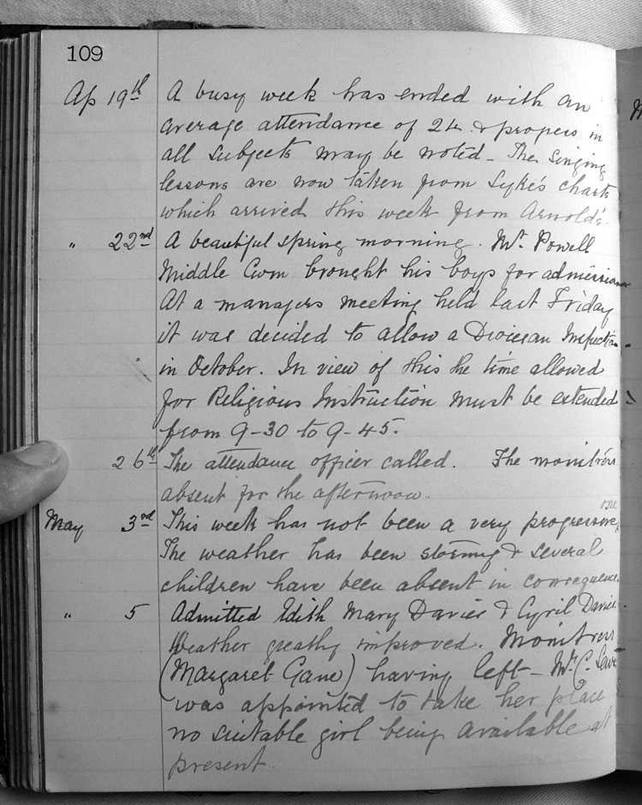 109
Ap 19th A busy week has ended with an
average attendance of 24 & progress in
all subjects may be noted - The singing
lessons are now taken from Syke's charts
which arrived this week from Arnold's.
" 22nd A beautiful spring morning. Mr. Powell
Middle Cwm brought his boys for admission
At a managers meeting held last Friday
it was decided to allow a Diocesan Inspection
in October. In view of this the time allowed
for Religious Instruction must be extended
from 9-30 to 9-45.
26th The attendance officer called. The monitress
absent for the afternoon.
May 3rd This week has not been a very progressive
The weather has been stormy & several
children have been absent in consequence.
" 5 Admitted Edith Mary Davies & Cyril Davies
Weather greatly improved. Monitress
(Margaret Gane) having left - Mr. C.
was appointed to take her place
no suitable girl being available at
present.